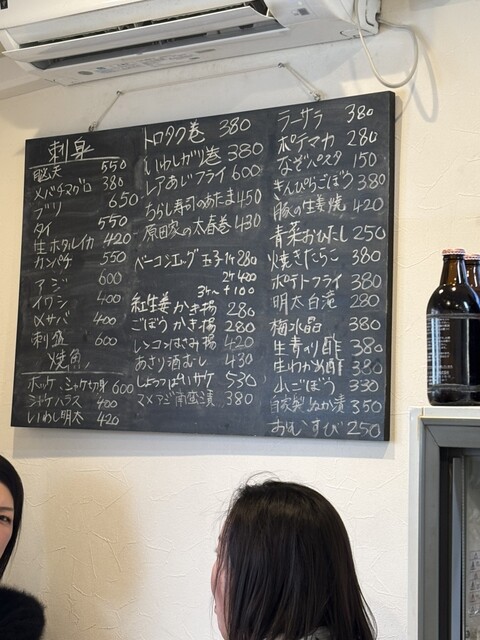 刺身
550
メバチマグロ 380
ブリ 650
タイ 550
生ホタルイカ 420
カンパチ 550
アジ 600
イワシ 400
〆サバ 400
刺盛 600
焼魚
ホッケ、シャケカマ 600
シャケハラス 400
いわし明太 420
トロタク巻 380
いわしガリ巻 380
レアあじフライ 600
ちらし寿司のあたま 450
原田家の太巻 430
ベーコンエッグ 玉子1ケ 280
2ケ 400
3ケ〜 +100
紅生姜かき揚 280
ごぼうかき揚 280
レンコンはさみ揚 420
あさり酒むし 430
しょっぱいサケ 530
マメアジ南蛮漬 380
ラーサラ 380
ポテマカ 280
なぞのパスタ 150
きんぴらごぼう 380
豚の生姜焼 420
青菜おひたし 250
焼きたらこ 380
ポテトフライ 380
明太白滝 280
梅水晶 380
生青のり酢 380
生わかめ酢 380
山ごぼう 330
自家製ぬか漬 350
おむすび 250